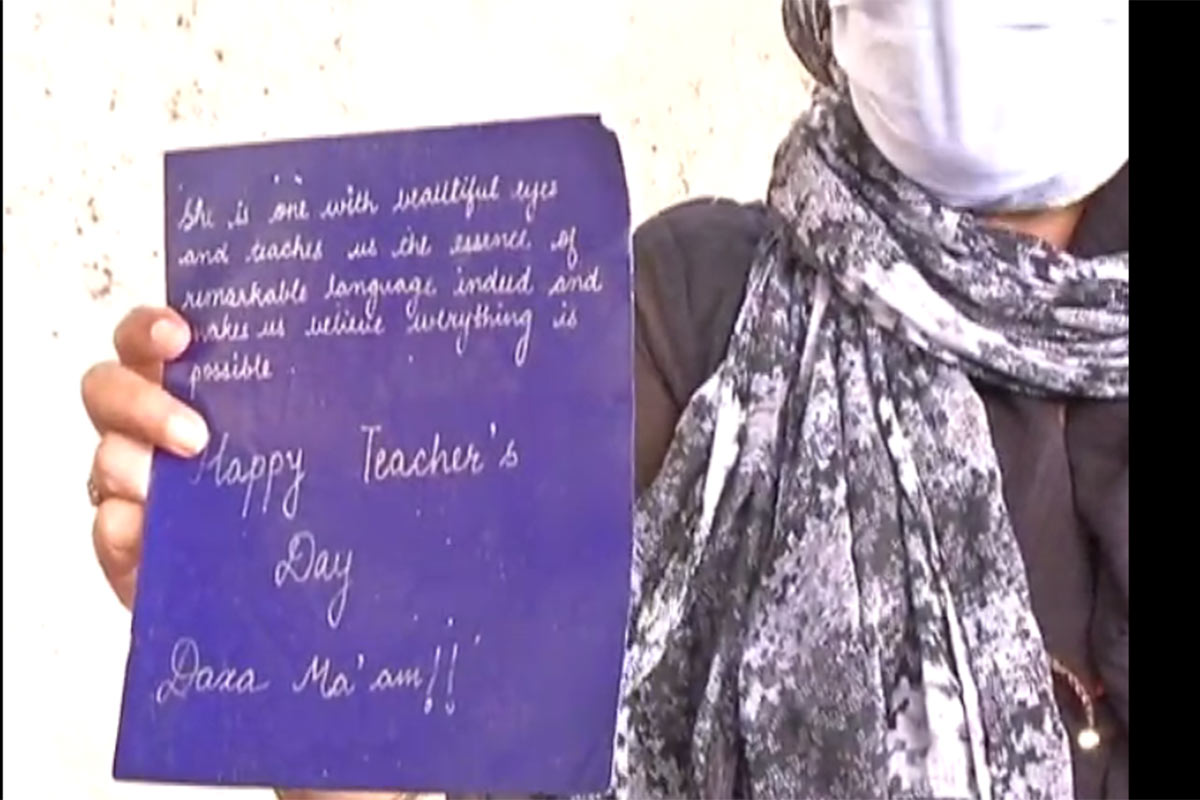 She is 'one' with beautiful eyes
and teaches us the essence of
remarkable language indeed and
makes us believe everything is
possible.
Happy Teacher's
Day
Daxa Ma'am!!